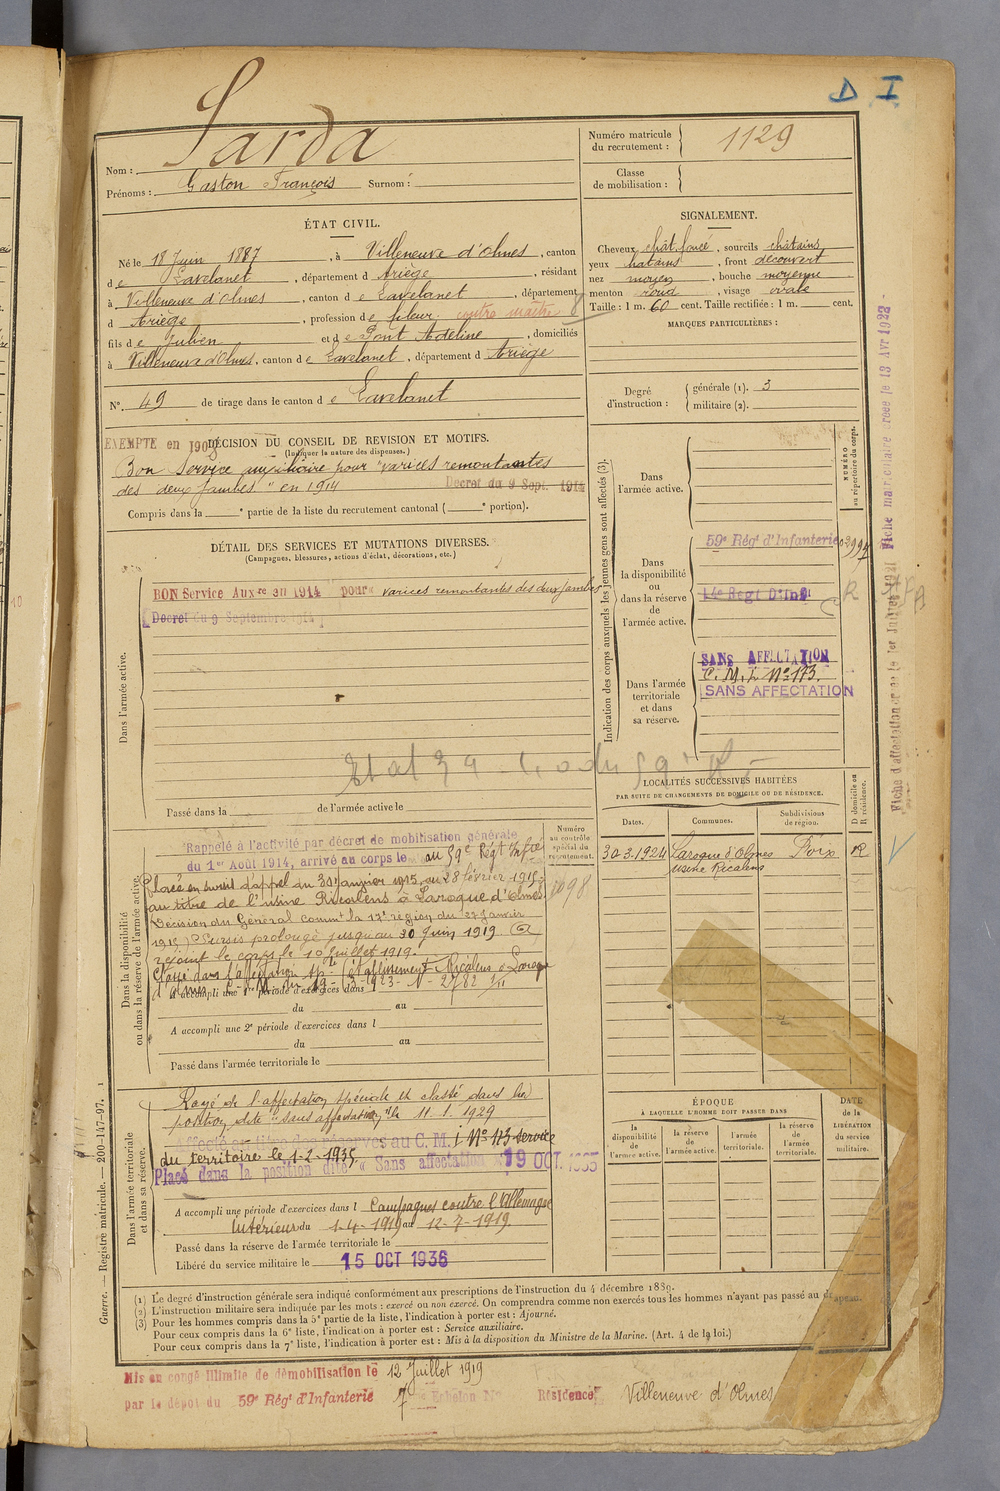 D I
Nom : Sarda
Prénoms : Gaston François Surnom :
Numéro matricule du recrutement : 1129
Classe de mobilisation :
ÉTAT CIVIL.
Né le 18 Juin 1887, à Villeneuve d'Olmes, canton
de Lavelanet, département d Ariège, résidant
à Villeneuve d'Olmes, canton de Lavelanet, département
d Ariège, profession de fileur contre maître
fils de Julien et de Pont Adeline, domiciliés
à Villeneuve d'Olmes, canton de Lavelanet, département d Ariège
N°. 49 de tirage dans le canton de Lavelanet
SIGNALEMENT.
Cheveux chât. foncé, sourcils châtains
yeux chatains, front découvert
nez moyen, bouche moyenne
menton rond, visage ovale
Taille : 1 m. 60 cent. Taille rectifiée : 1 m. cent.
MARQUES PARTICULIÈRES :
Degré d'instruction : générale (1). 3
militaire (2).
EXEMPTE en 1908
DÉCISION DU CONSEIL DE REVISION ET MOTIFS.
(Indiquer la nature des dispenses.)
Bon Service auxiliaire pour "varices remontantes
des deux jambes" en 1914 Décret du 9 Sept. 1914
Compris dans la ° partie de la liste du recrutement cantonal ( ° portion).
DÉTAIL DES SERVICES ET MUTATIONS DIVERSES.
(Campagnes, blessures, actions d'éclat, décorations, etc.)
Dans l'armée active.
BON Service Auxre en 1914 pour "varices remontantes des deux jambes
Décret du 9 Septembre 1914
Passé dans la de l'armée active le
Indication des corps auxquels les jeunes gens sont affectés (3).
NUMÉRO au répertoire du corps.
Dans l'armée active.
Dans la disponibilité ou dans la réserve de l'armée active.
59e Régt d'Infanterie
14e Regt D'Inf
R
Dans l'armée territoriale et dans sa réserve.
SANS AFFECTATION
C. M. I. N° 173.
SANS AFFECTATION
LOCALITÉS SUCCESSIVES HABITÉES
PAR SUITE DE CHANGEMENTS DE DOMICILE OU DE RÉSIDENCE.
Dates. Communes. Subdivisions de région. D domicile ou R résidence.
30.3.1924 Laroque d'Olmes Foix R
usine Ricalens
Fiche matriculaire créée le 13 Avr 1922
Dans la disponibilité ou dans la réserve de l'armée active.
Numéro au contrôle spécial du recrutement.
Rappelé à l'activité par décret de mobilisation générale
du 1er Août 1914, arrivé au corps le au 59e Régt Infrie
Placé en sursis d'appel du 30 janvier 1915 au 28 février 1915
au titre de l'usine Ricalens à Laroque d'Olmes
Décision du Général Commt la 17e région du 27 janvier
1915) Sursis prolongé jusqu'au 30 Juin 1919.
rejoint le corps le 10 juillet 1919.
Classé dans l'affectation sp- établissement Ricalens à Laroque
d'olmes
A accompli une 1re période d'exercices dans
du au
A accompli une 2e période d'exercices dans l
du au
Passé dans l'armée territoriale le
Dans l'armée territoriale et dans sa réserve.
Rayé de l'affectation spéciale et classé dans la
position dite "sans affectation" le 11.1.1929
Affecté au titre des réserves au C. M. I N° 173 service
du territoire le 1-2-1935.
Placé dans la position dite « Sans affectation » 19 OCT. 1935
A accompli une période d'exercices dans l Campagnes contre l'Allemagne
Intérieur du 1-4-1919 au 12-7-1919
Passé dans la réserve de l'armée territoriale le
Libéré du service militaire le 15 OCT 1936
ÉPOQUE
À LAQUELLE L'HOMME DOIT PASSER DANS
la disponibilité de l'armée active. la réserve de l'armée active. l'armée territoriale. la réserve de l'armée territoriale.
DATE de la LIBÉRATION du service militaire.
Guerre. — Registre matricule. — 200-147-97.
(1) Le degré d'instruction générale sera indiqué conformément aux prescriptions de l'instruction du 4 décembre 1889.
(2) L'instruction militaire sera indiquée par les mots : exercé ou non exercé. On comprendra comme non exercés tous les hommes n'ayant pas passé au drapeau.
(3) Pour les hommes compris dans la 5e partie de la liste, l'indication à porter est : Ajourné.
Pour ceux compris dans la 6e liste, l'indication à porter est : Service auxiliaire.
Pour ceux compris dans la 7e liste, l'indication à porter est : Mis à la disposition du Ministre de la Marine. (Art. 4 de la loi.)
Mis en congé illimité de démobilisation le 12 Juillet 1919
par le dépôt du 59e Régt d'Infanterie 7e Echelon N° Résidence Villeneuve d'Olmes